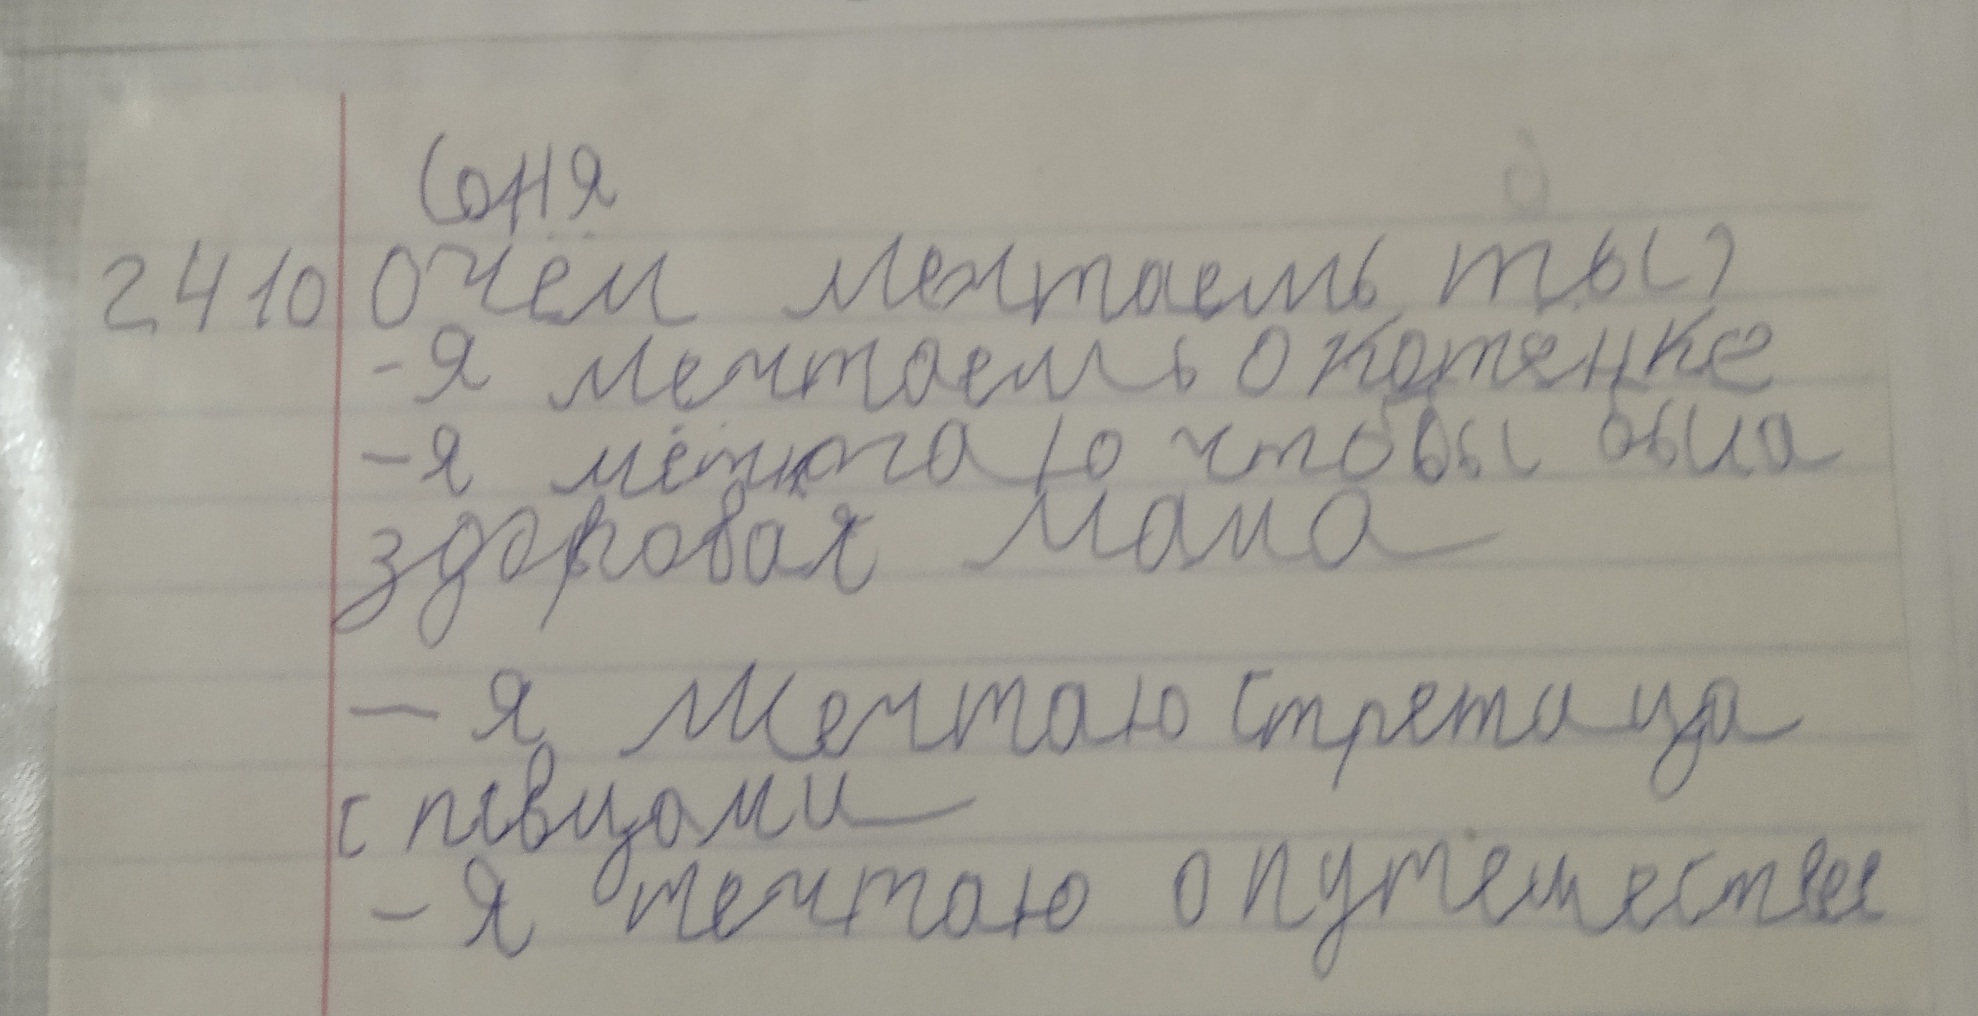 Соня
2410 О чём мечтаешь ты?
-Я мечтаешь о котёнке
-я мечтаю чтобы была
здоровая мама
- я мечтаю стретица
с певцами
- я мечтаю о путешествее